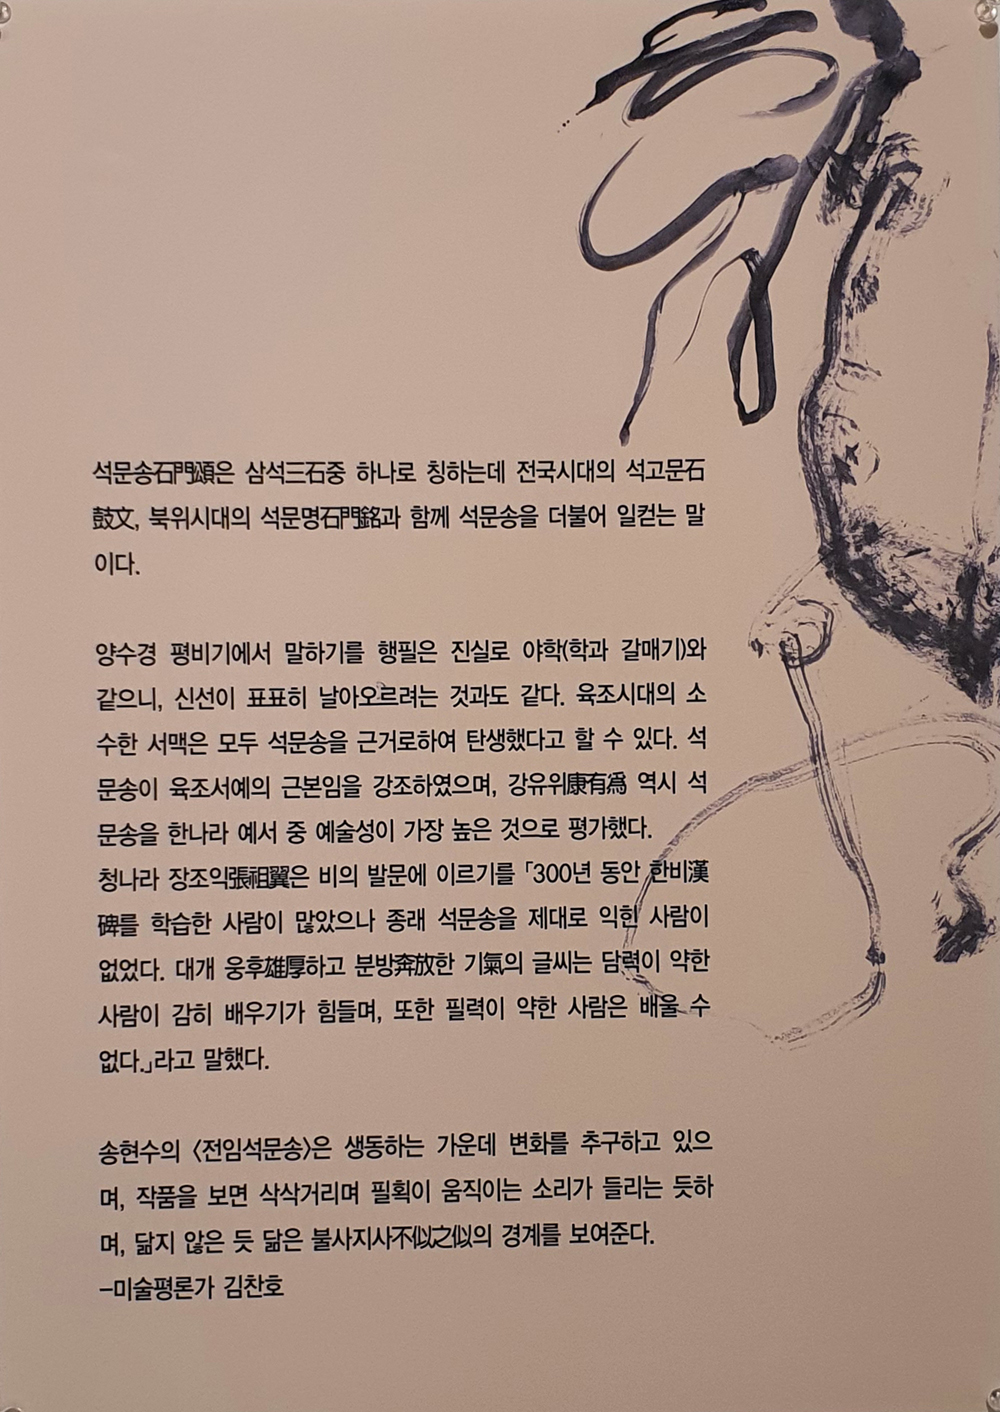 석문송石門頌은 삼석三石중 하나로 칭하는데 전국시대의 석고문石
鼓文, 북위시대의 석문명石門銘과 함께 석문송을 더불어 일컫는 말
이다.
양수경 평비기에서 말하기를 행필은 진실로 야학(학과 갈매기)와
같으니, 신선이 표표히 날아오르려는 것과도 같다. 육조시대의 소
수한 서맥은 모두 석문송을 근거로하여 탄생했다고 할 수 있다. 석
문송이 육조서예의 근본임을 강조하였으며, 강유위康有爲 역시 석
문송을 한나라 예서 중 예술성이 가장 높은 것으로 평가했다.
청나라 장조익張祖翼은 비의 발문에 이르기를 「300년 동안 한비漢
碑를 학습한 사람이 많았으나 종래 석문송을 제대로 익힌 사람이
없었다. 대개 웅후雄厚하고 분방奔放한 기氣의 글씨는 담력이 약한
사람이 감히 배우기가 힘들며, 또한 필력이 약한 사람은 배울 수
없다.」라고 말했다.
송현수의 〈전임석문송〉은 생동하는 가운데 변화를 추구하고 있으
며, 작품을 보면 삭삭거리며 필획이 움직이는 소리가 들리는 듯하
며, 닮지 않은 듯 닮은 불사지사不似之似의 경계를 보여준다.
-미술평론가 김찬호